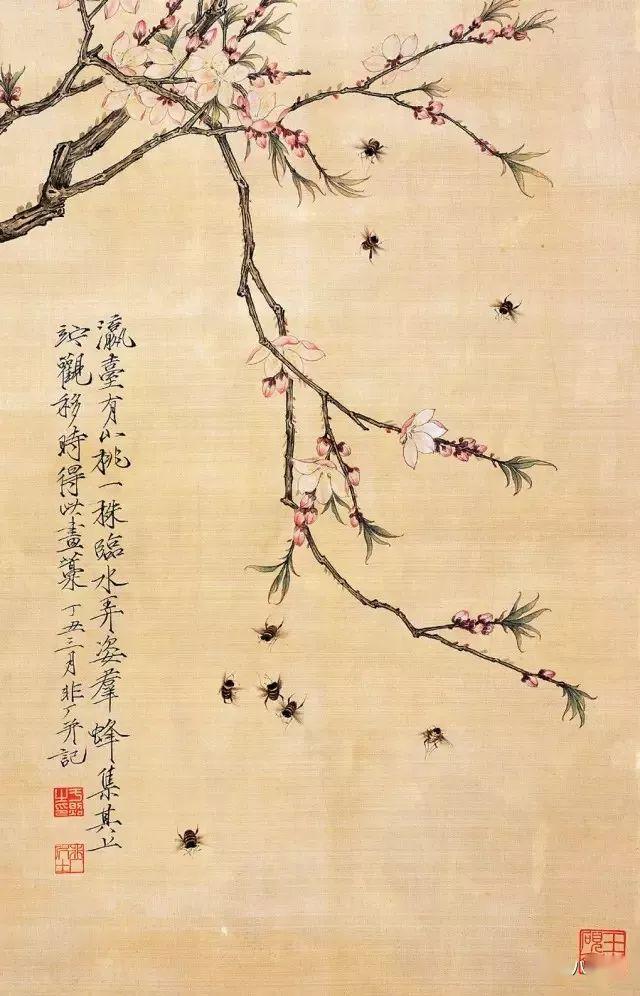 瀛臺有小桃一株臨水弄姿羣蜂集其上
觀移時得此畫藁丁丑三月非厂并記
于照之印